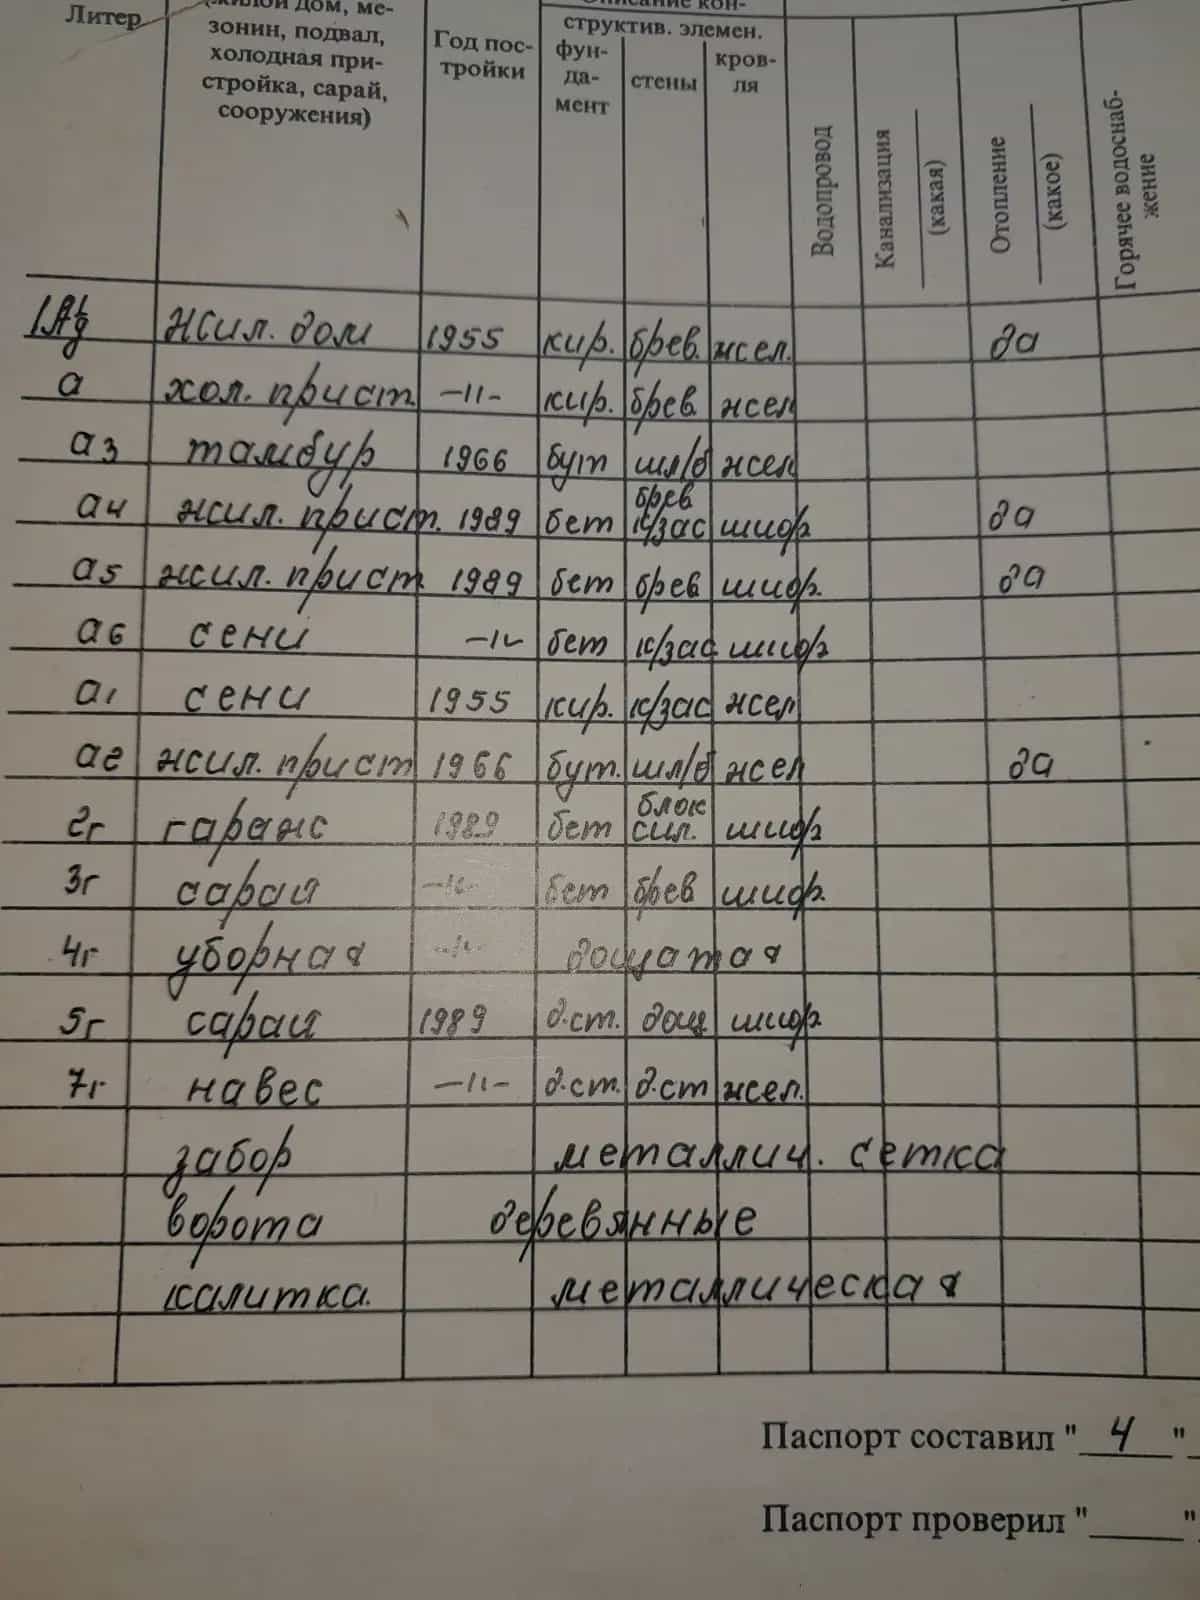 Литер
(жилой дом, ме-
зонин, подвал,
холодная при-
стройка, сарай,
сооружения)
Год пос-
тройки
Описание кон-
структив. элемен.
фун-
да-
мент
стены
кров-
ля
Водопровод
Канализация
(какая)
Отопление
(какое)
Горячее водоснаб-
жение
жил. дом 1955 кир. брев. жел. да
а хол. прист. –〃– кир. брев. жел
а3 тамбур 1966 бут шл/б жел
а4 жил. прист. 1989 бет брев к/зас шифр да
а5 жил. прист. 1989 бет брев шифр. да
а6 сени –〃– бет к/зас шифр
а1 сени 1955 кир. к/зас жел
а2 жил. прист 1966 бут. шл/б жел да
2г гараж 1989 бет блок сил. шифр
3г сарай –〃– бет брев шифр.
4г уборная –〃– дощатая
5г сарай 1989 д.ст. дощ шифр
7г навес –〃– д.ст. д.ст жел.
забор металлич. сетка
ворота деревянные
калитка. металлическая
Паспорт составил " 4 "
Паспорт проверил "______"